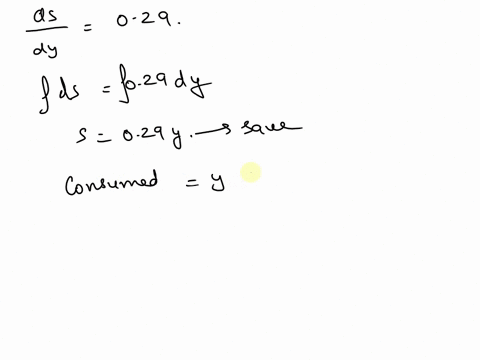 ds/dy = 0.29.
∫ds = ∫0.29 dy
s = 0.29 y. → save
Consumed = y